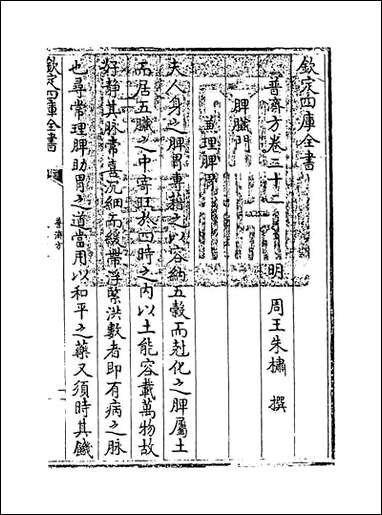 欽定四庫全書
普濟方卷二十二
明 周王朱橚 撰
脾臟門
兼理脾胃
夫人身之脾胃專藉之以容納五穀而尅化之脾屬土
而居五臟之中寄旺於四時之內以土能容載萬物故
好靜其脉常喜沉細而緩帶浮緊洪數者即有病之脉
也尋常理脾助胃之道當用以和平之藥又須時其饑
欽定四庫全書
普濟方